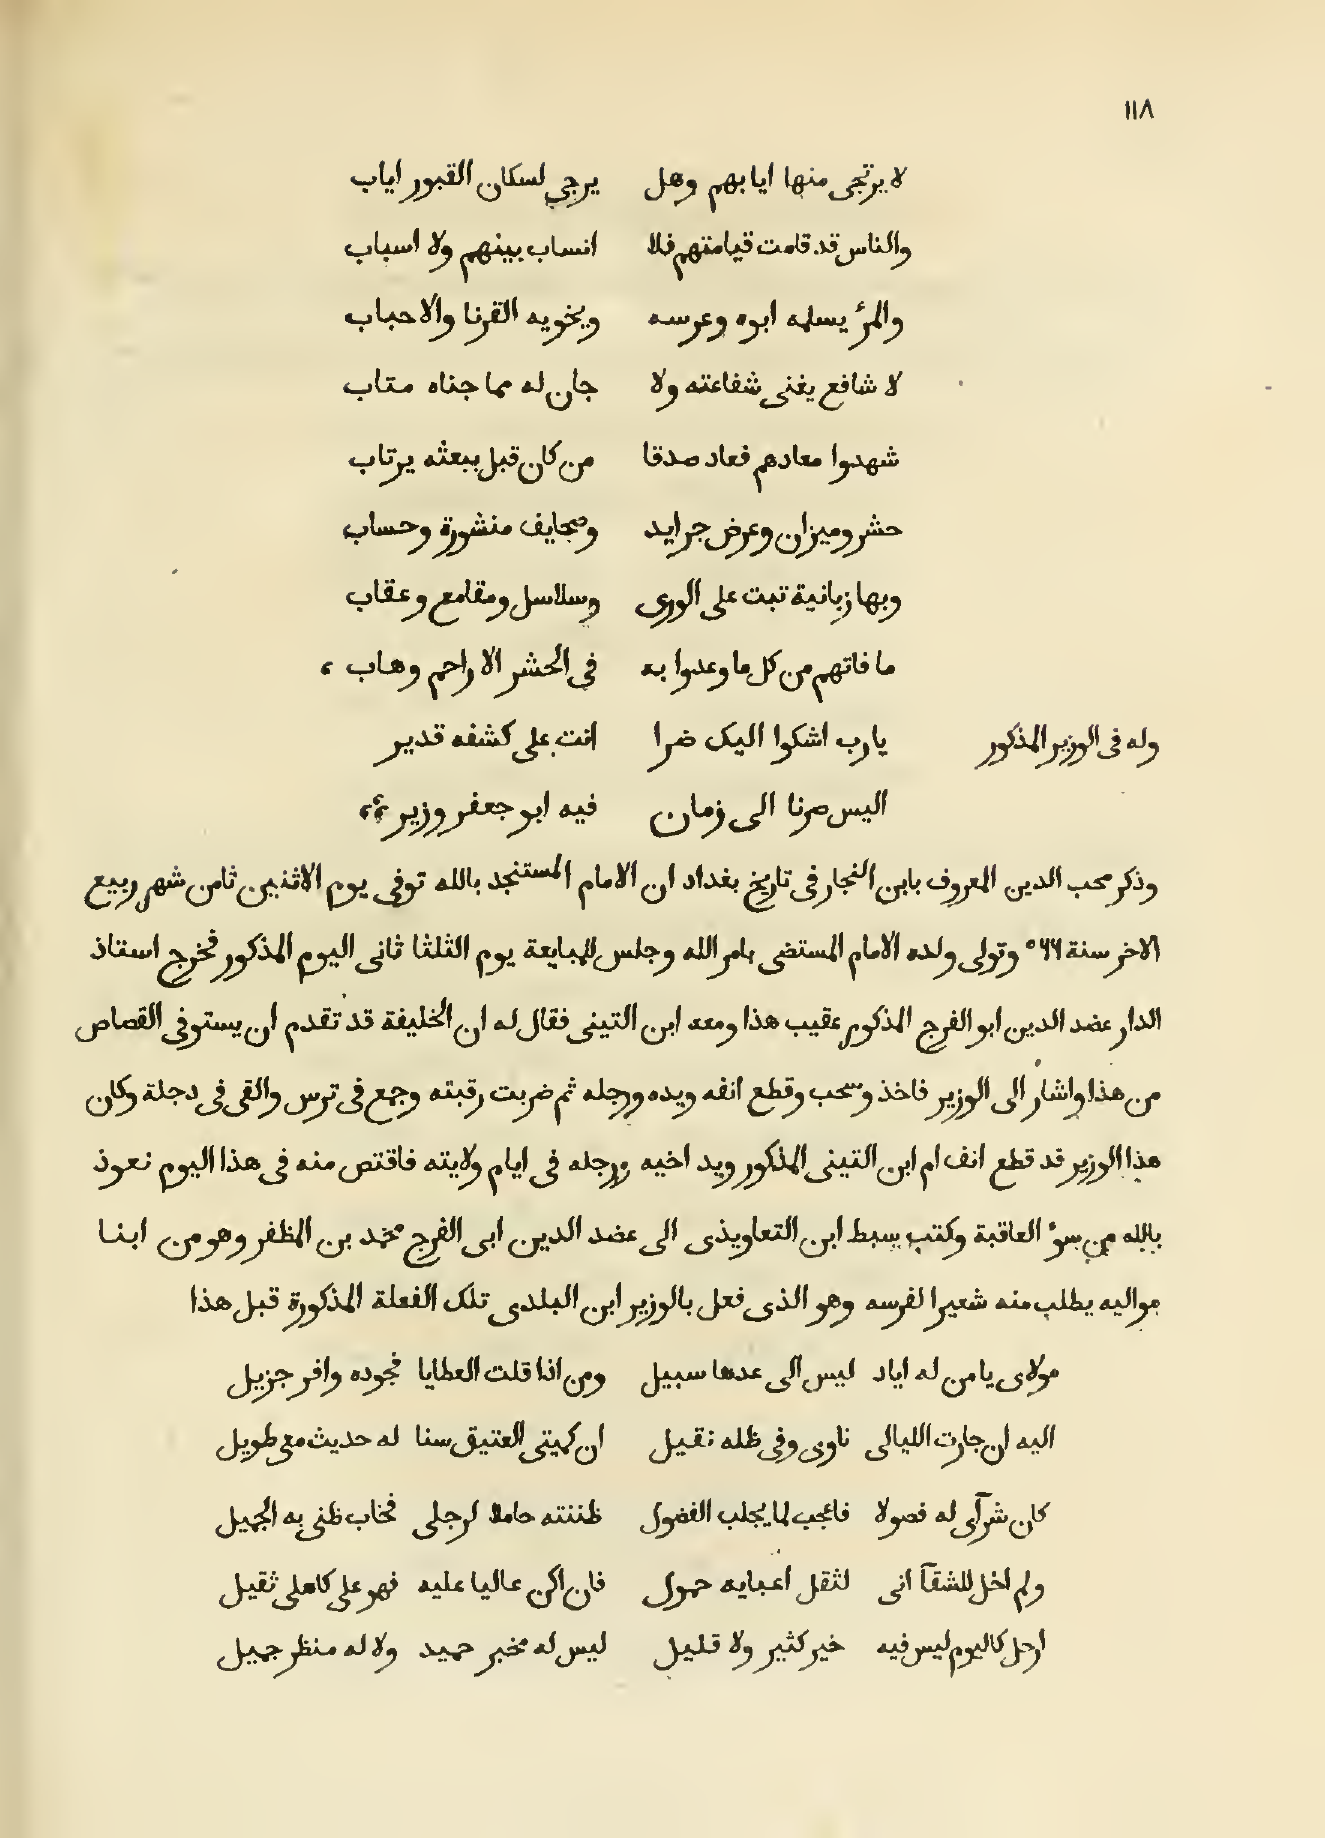 ١١٨
لا يرتجى منها ايابهم وهل يرجى لسكان القبور اياب
والناس قد قامت قيامتهم فلا انساب بينهم ولا اسباب
والمرء يسلمه ابوه وعرسه ويخويه القرنا والاحباب
لا شافع يغنى شفاعته ولا جان له مما جناه متاب
شهدوا معادهم فعاد صدقا من كان قبل ببعثه يرتاب
حشر وميزان وعرض جرايد وصحايف منشورة وحساب
وبها زبانية تبت على الورى وسلاسل ومقامع وعقاب
ما فاتهم من كل ما وعدوا به فى الحشر الا راحم وهاب
وله فى الوزير المذكور يا رب اشكوا اليك ضرا انت على كشفه قدير
اليس صرنا الى زمان فيه ابو جعفر وزير
وذكر محب الدين المعروف بابن النجار فى تاريخ بغداد ان الامام المستنجد بالله توفى يوم الاثنين ثامن شهر ربيع
الاخر سنة ٥٦٦ وتولى ولده الامام المستضى بامر الله وجلس للمبايعة يوم الثلثا ثانى اليوم المذكور فخرج استاذ
الدار عضد الدين ابو الفرج المذكور عقيب هذا ومعه ابن التينى فقال له ان الخليفة قد تقدم ان يستوفى القصاص
من هذا واشار الى الوزير فاخذ وسحب وقطع انفه ويده ورجله ثم ضربت رقبته وجمع فى ترس والقى فى دجلة وكان
هذا الوزير قد قطع انف ام ابن التينى المذكور ويد اخيه ورجله فى ايام ولايته فاقتص منه فى هذا اليوم نعوذ
بالله من سوء العاقبة وكتب سبط ابن التعاويذى الى عضد الدين ابى الفرج محمد بن المظفر وهو من ابنا
مواليه يطلب منه شعيرا لفرسه وهو الذى فعل بالوزير ابن البلدى تلك الفعلة المذكورة قبل هذا
مولاى يا من له اياد ليس الى عدها سبيل ومن اذا قلت العطايا فجوده وافر جزيل
اليه ان جارت الليالى ناوى وفى ظله نقيل ان كميتى العتيق سنا له حديث معى طويل
كان شرآى له فصولا فاعجب لما يجلب الفضول ظننته حاملا لرجلى فخاب ظنى به الجميل
ولم اخل للشقآ انى لثقل اعبايه حمول فان اكن عاليا عليه فهو على كاهلى ثقيل
ارحل كاليوم ليس فيه خير كثير ولا قليل ليس له مخبر حميد ولا له منظر جميل